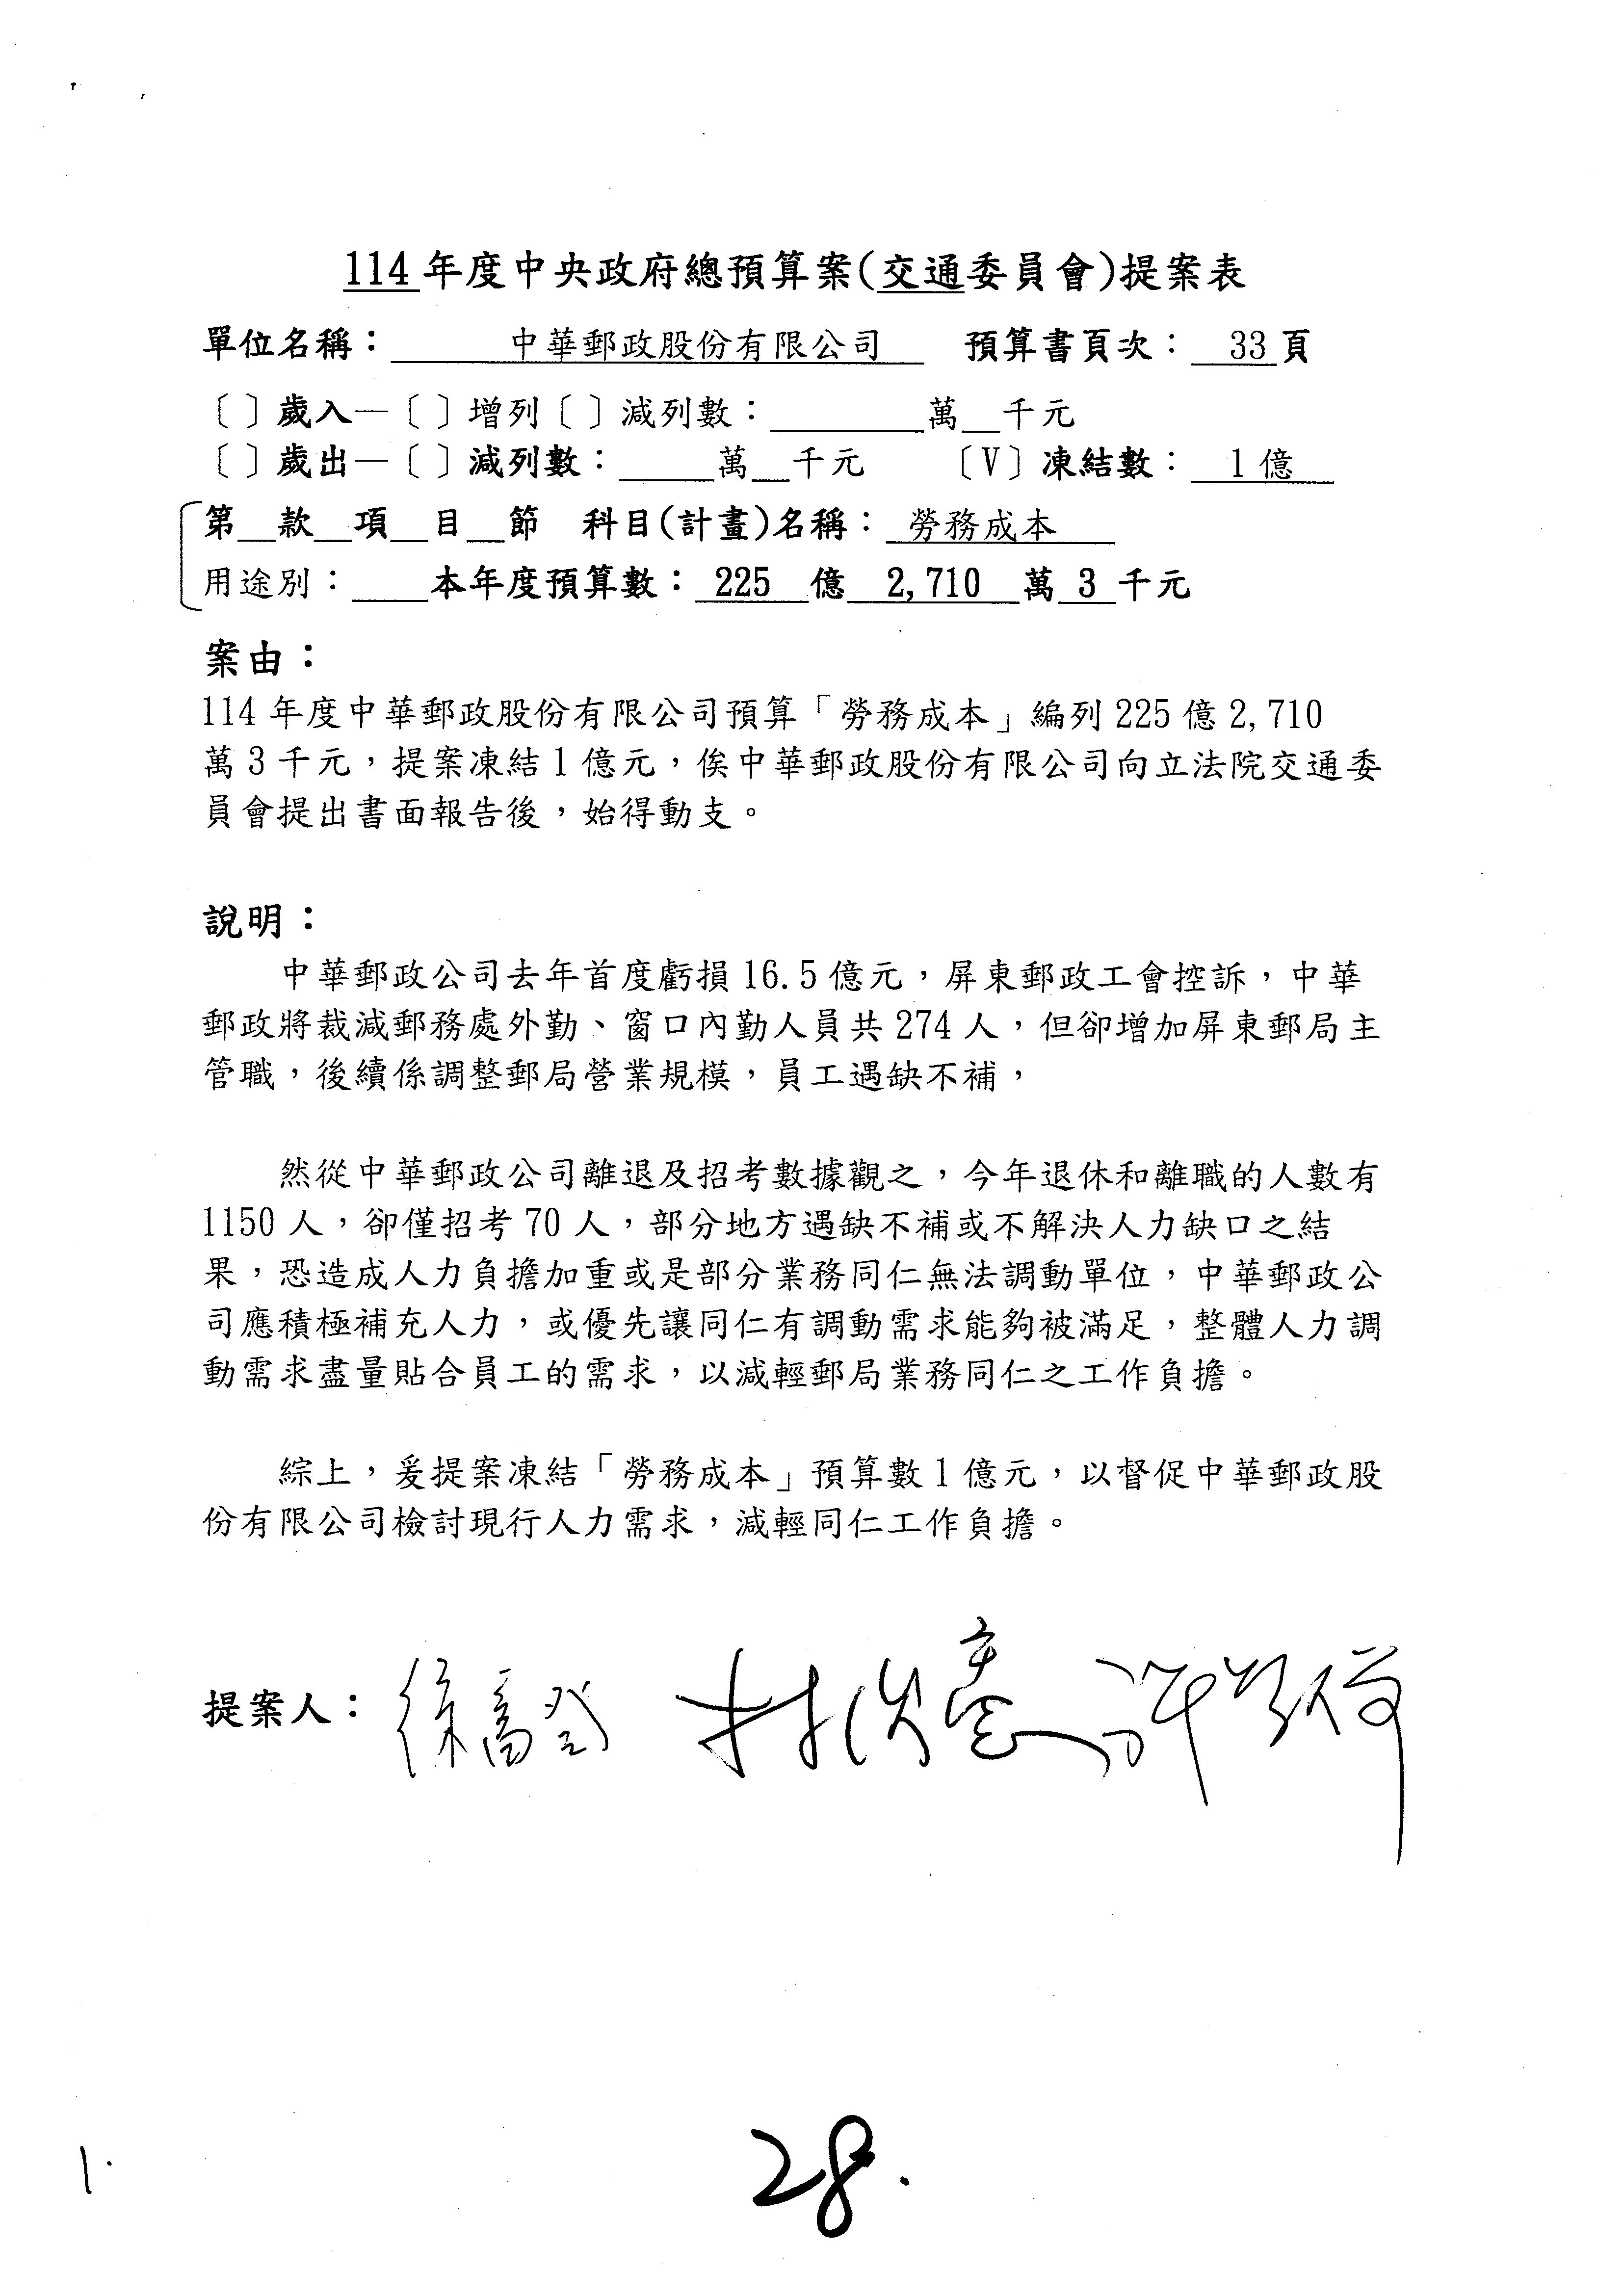 114年度中央政府總預算案(交通委員會)提案表
單位名稱：　中華郵政股份有限公司　預算書頁次：　33頁
〔〕歲入—〔〕增列〔〕減列數：________萬__千元
〔〕歲出—〔〕減列數：_____萬__千元　〔V〕凍結數：　1億
第__款__項__目__節　科目(計畫)名稱：　勞務成本
用途別：____本年度預算數：　225　億　2,710　萬　3　千元
案由：
114年度中華郵政股份有限公司預算「勞務成本」編列225億2,710
萬3千元，提案凍結1億元，俟中華郵政股份有限公司向立法院交通委
員會提出書面報告後，始得動支。
說明：
中華郵政公司去年首度虧損16.5億元，屏東郵政工會控訴，中華
郵政將裁減郵務處外勤、窗口內勤人員共274人，但卻增加屏東郵局主
管職，後續係調整郵局營業規模，員工遇缺不補，
然從中華郵政公司離退及招考數據觀之，今年退休和離職的人數有
1150人，卻僅招考70人，部分地方遇缺不補或不解決人力缺口之結
果，恐造成人力負擔加重或是部分業務同仁無法調動單位，中華郵政公
司應積極補充人力，或優先讓同仁有調動需求能夠被滿足，整體人力調
動需求盡量貼合員工的需求，以減輕郵局業務同仁之工作負擔。
綜上，爰提案凍結「勞務成本」預算數1億元，以督促中華郵政股
份有限公司檢討現行人力需求，減輕同仁工作負擔。
提案人：
28.
1.